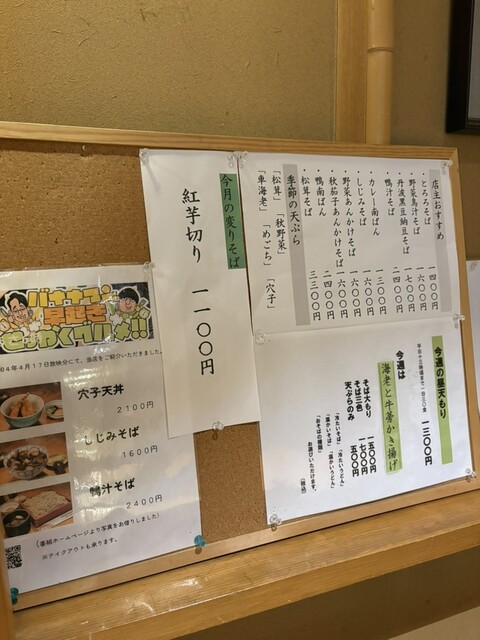 店主おすすめ
・とろろそば 一四〇〇円
・野菜鳥汁そば 一七〇〇円
・丹波黒豆納豆そば 一六〇〇円
・鴨汁そば 二四〇〇円
・カレー南ばん 一三〇〇円
・しじみそば 一六〇〇円
・野菜あんかけそば 一六〇〇円
・秋茄子あんかけそば 一六〇〇円
・鴨南ばん 二四〇〇円
・松茸そば 三三〇〇円
季節の天ぷら
「松茸」「秋野菜」
「車海老」「めごち」「穴子」
今月の変りそば
紅芋切り 一一〇〇円
今週の昼天もり
一三〇〇円
今週は
海老と牛蒡かき揚げ
そば大もり 一五〇〇円
そば三色 一七〇〇円
天ぷらのみ 五〇〇円
「冷たいそば」「冷たいうどん」
「温かいそば」「温かいうどん」
「おそばの種類」
お選びいただけます。
(税込)
バナナマン
早起き
せっかくグルメ!!
04年4月17日放映分にて、当店をご紹介いただきました
穴子天丼
2100円
しじみそば
1600円
鴨汁そば
2400円
(番組ホームページより写真をお借りしました)
※テイクアウトも承ります。